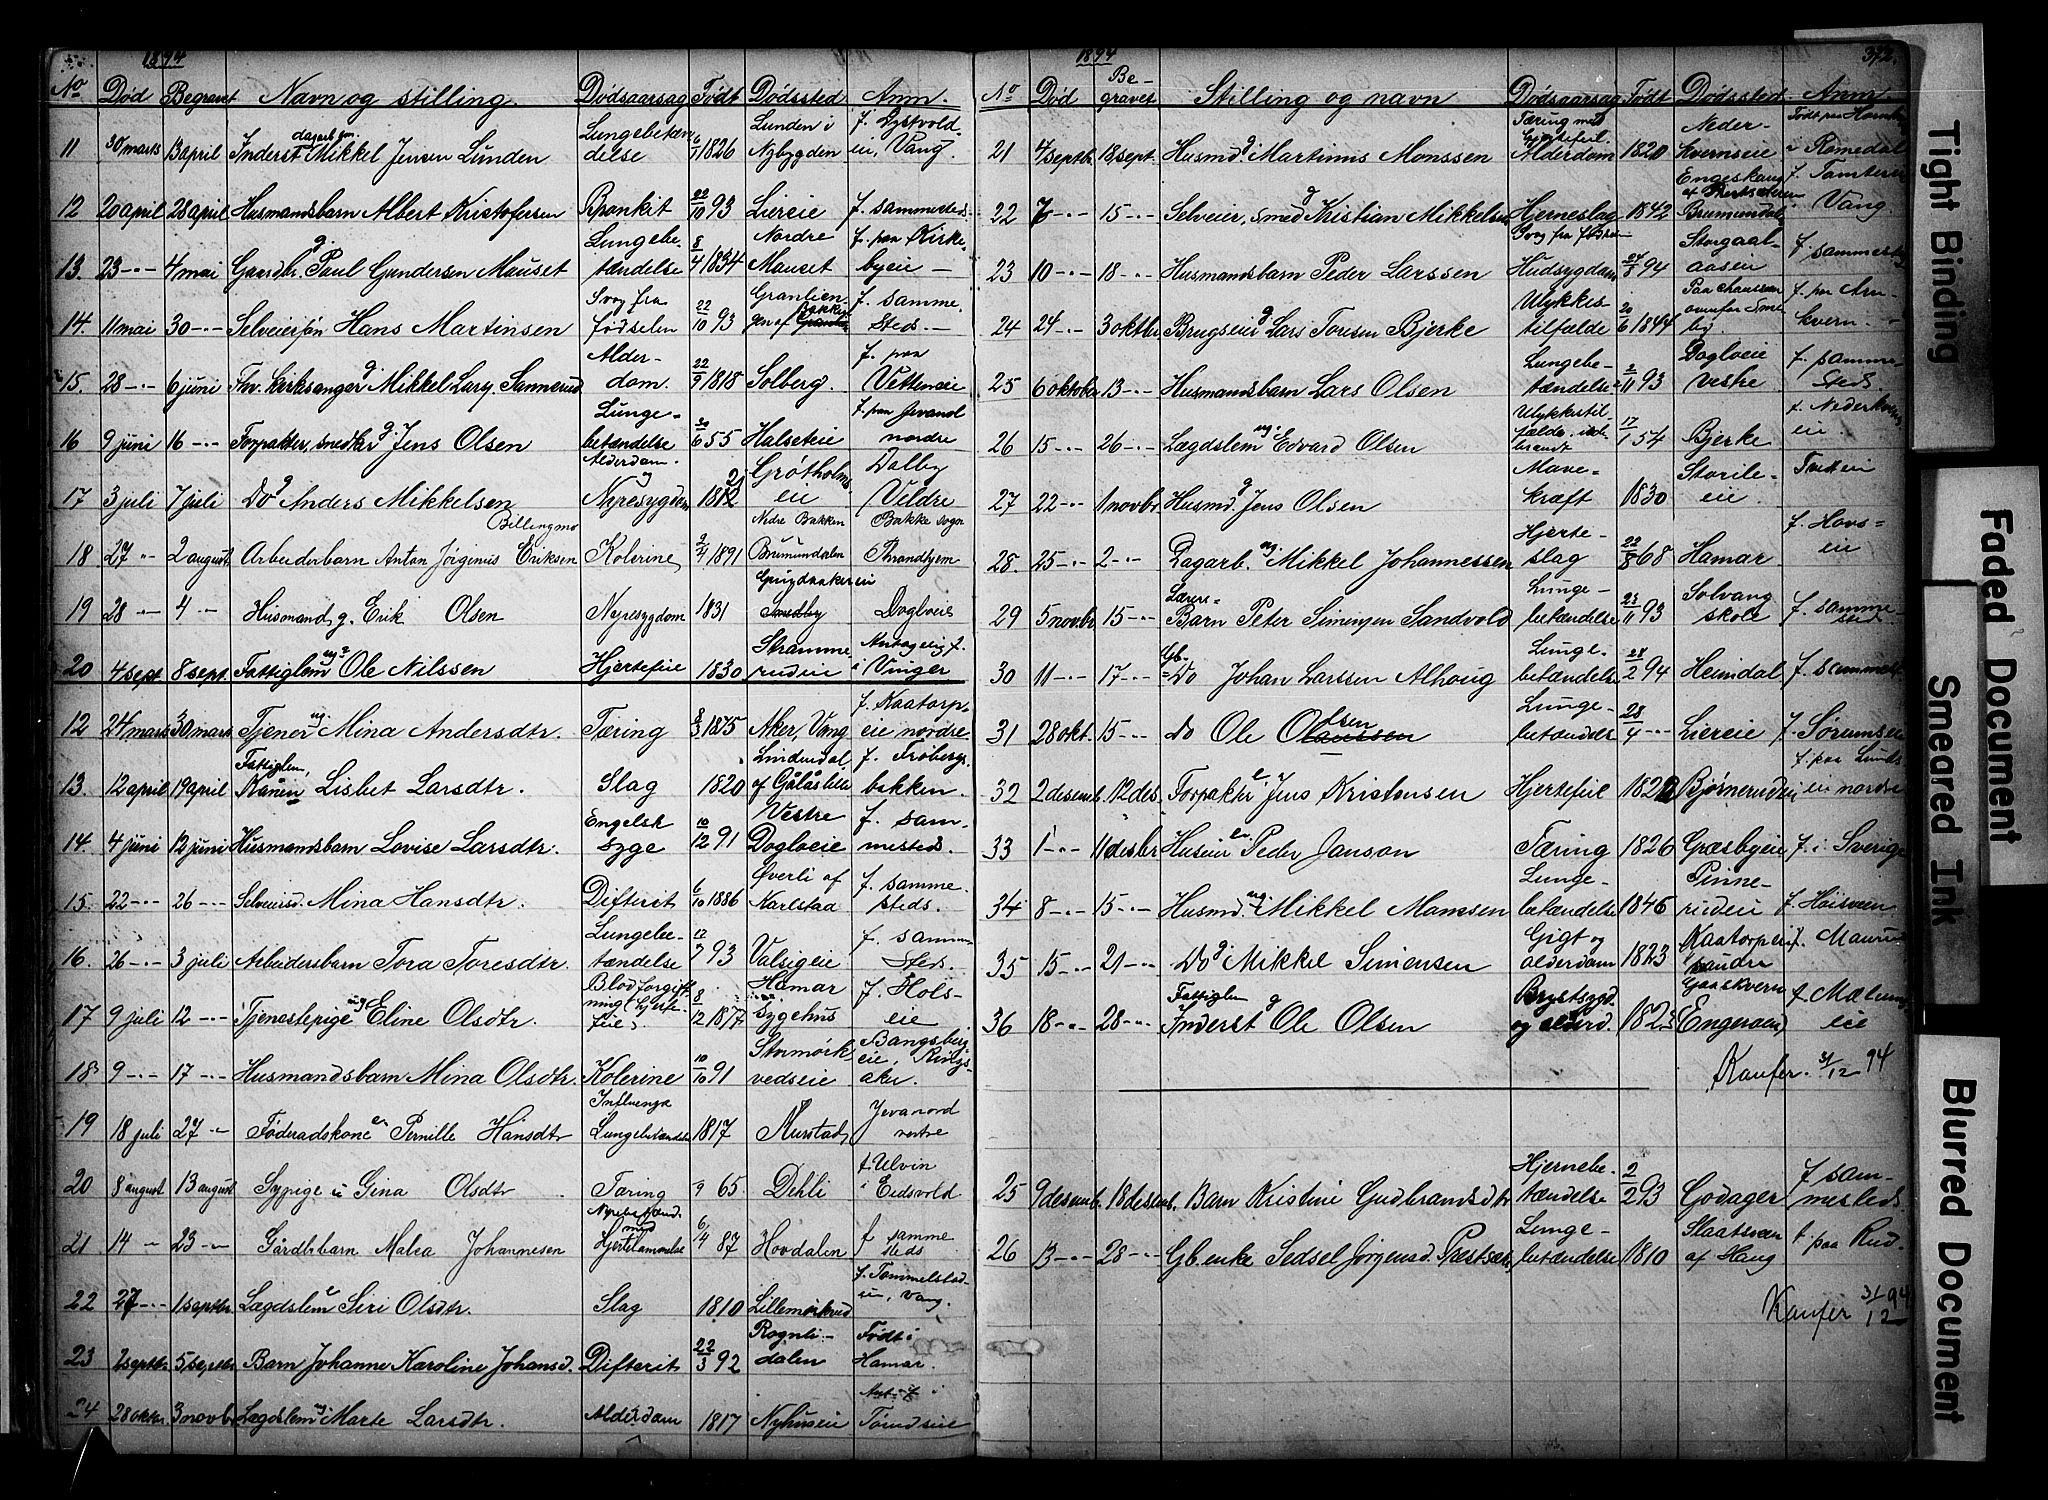 1894
No Død Begravet Navn og stilling. Dødsaarsag Født Dødssted Anm.
11 30 marts 13 april Inderst dagarb. gm. Mikkel Jensen Lunden Lungebetændelse 6/7 1826 Lunden i Nybygden f. Dystvoldeie, Vang.
12 20 april 28 april Husmandsbarn Albert Kristofersen Bronkit 22/10 93 Liereie f. sammesteds
13. 23 -"- 4 mai Gaardbr. g. Paul Gundersen Mauset Lungebetændelse 8/4 1834 Nordre Mauset f. paa Kirkebyeie
14. 11 mai 30 -"- Selveiersøn Hans Martinsen Svag fra fødselen 22/10 93 Granlien gen af Bakken f. sammesteds.
15. 28 -"- 6 juni Fhv. kirksanger g. Mikkel Lary. Sannerud Alderdom. 22/9 1818 Solberg. f. paa Vetteneie
16 9 juni 16 -"- Forpakter, snedker g. Jens Olsen Lungebetændelse 30/6 55 Halseteie f. paa Jevanol nordre
17 3 juli 7 juli Do g Anders Mikkelsen Alderdom og Nyresygdom 1812 Grøtholmeie Dalby Veldre
18 27 " 2 august Arbeiderbarn Anton Jørginius Eriksen Billingmo Kolerine 2/4 1891 Nedre Bakken Brumundalen Bakke sogn Thrandhjem
19 28 " 4 " Husmand g. Erik Olsen Nyresygdom 1831 Smedby Dogloeie
20 4 sept 8 sept. Fattiglem ug? Ole Nilssen Hjertefeil 1830 Strammerudeie Antagelig f. i Vinger
12 24 marts 30 marts Tjener ug Mina Andersdtr. Tæring 8/3 1875 Aker, Vang f. Kaatorpeie nordre
13. 12 april 19 april Fattiglem, Lisbet Larsdtr. Slag 1820 Lindendal af Gålåslille f. Frobergsbekken.
14. 4 juni 12 juni Husmandsbarn Lovise Larsdtr. Engelsk syge 10/12 91 Vestre Dogloeie f. sammesteds.
15. 22 -"- 26 -"- Selveiersd. Mina Hansdtr. Difterit 6/10 1886 Øverli af Karlstad f. sammesteds.
16. 26 -"- 3 juli Arbeidersbarn Tora Toresdtr. Lungebetændelse 17/7 93 Valsigeie f. sammesteds.
17 9 juli 12 -"- Tjenestepige ug Eline Olsdtr. Blodforgiftning (hjertefeie). 8/12 1877 Hamar Sygehus f. Holseie
18 9 -"- 17 -"- Husmandsbarn Mina Olsdtr. Kolerine 10/10 91 Stormørkvedseie Bangsbergeie, Ringsaker.
19 18 juli 27 " Føderadskone e. Pernille Hansdtr Influenza Lungebetændelse 1817 Murstad Jevanord vestre
20 8 august 13 august Sypige u Gina Olsdtr Tæring 9 65 Dehli f. Ulvin i Eidsvold
21 14 " 23 " Gårdbrbarn Malea Johannesen Nyrebetænd. med Hjertelammelse 6/4 87 Hovdalen f sammesteds
22 27 -"- 1 septbr. Lægdslem u Siri Olsdtr. Slag 1810 Lillemørkved f. Tommelstadeie, Vang.
23 2 septbr. 5 septbr Barn Johanne Karoline Johansd. Difterit 22/3 92 Rognlidalen Født i Hamar.
24 28 oktbr. 3 novb. Lægdslem ug. Marte Larsdtr. Alderdom 1817 Nyhuseie Ant. f i Tomdseie
1894
372.
No Død Begravet Stilling og navn Dødsaarsag Født Dødssted Anm.
21 4 septbr. 18 sept. Husmd. g Martinus Monssen Tæring med Hjertefeil. Alderdom 1820 Nederkvernseie Født paa Hornby i Romedal
22 7 -"- 15 -"- Selveier, smed g Kristian Mikkelsen Hjerneslag 1842 Engeskaug Brumundal f. Tomteren Vang.
23 10 -"- 18 -"- Husmandsbarn Peder Larssen Svag fra fødsel Hudsygdom 24/8 94 Storgaalaaseie f. sammesteds
24 24 -"- 3 oktbr. Brugseier g Lars Toresen Bjerke Ulykkestilfælde 20/6 1844 Paa chausseen ovenfor Smedby. f. paa Arnkvern.
25 6 oktober 13 -"- Husmandsbarn Lars Olsen Lungebetændelse 2/11 93 Dogloeie vestre f. sammesteds.
26 15 -"- 26 -"- Lægdslem ug. Edvard Olsen Ulykkestilfælde, indebrændt 17/1 54 Bjerke f. Nederkverneie.
27 22 -"- 1 novbr. Husmd. g Jens Olsen Mavekræft 1830 Storileeie.
28. 25 -"- 2 -"- Dagarb. ug. Mikkel Johannessen Hjerteslag 22/8 68 Hamar f. Hovseie
29 5 novbr 15 -"- Lærer= Barn Peter Simensen Sandvold Lungebetændelse 23/11 93 Solvang skole f. sammested
30 11 -"- 17 -"- Gb. Do Johan Larssen Alhaug Lungebetændelse 28/2 94 Heimdal f. sammested
31 28 okt. 15 -"- Do Ole Olsen Lungebetændels 28/4 -"- Liereie f. Sørumseie
32 2 desemb. 12 des. Forpakter e Jens Kristensen Hjertefeil 1822 Bjørnerudeie f. paa Lundseie nordre
33 1 -"- 11 desbr. Huseier e. Peder Janson Tæring 1826 Græsbyeie f. i Sverige
34 8 -"- 15 -"- Husmd. ug. Mikkel Monssen Lungebetændelse 1846 Pinnerudeie f. Hoisveen
35 15 -"- 21 -"- Do g Mikkel Simensen Gigt og alderdom 1823 Kaatorpeie søndre f. Maurud
36 18 -"- 28 -"- Fattiglem Inderst g Ole Olsen Brystsygd. og alderd. 1823 Gaaskvern (Engeroen) f. Mælumeie
Kaufer. 31/12 94
25 9 desemb. 18 desemb. Barn Kristine Gudbrandsdtr Hjernebetændelse 2/2 93 Godager f sammesteds.
26 13 -"- 28 -"- Gb. enke Sedsel Jørgensd. Præstsæter Lungebetændelse 1810 Slaatsveen af Haug f paa Rud.
Kaufer 31/12 94
Tight Binding
Faded Document
Smeared Ink
Blurred Document